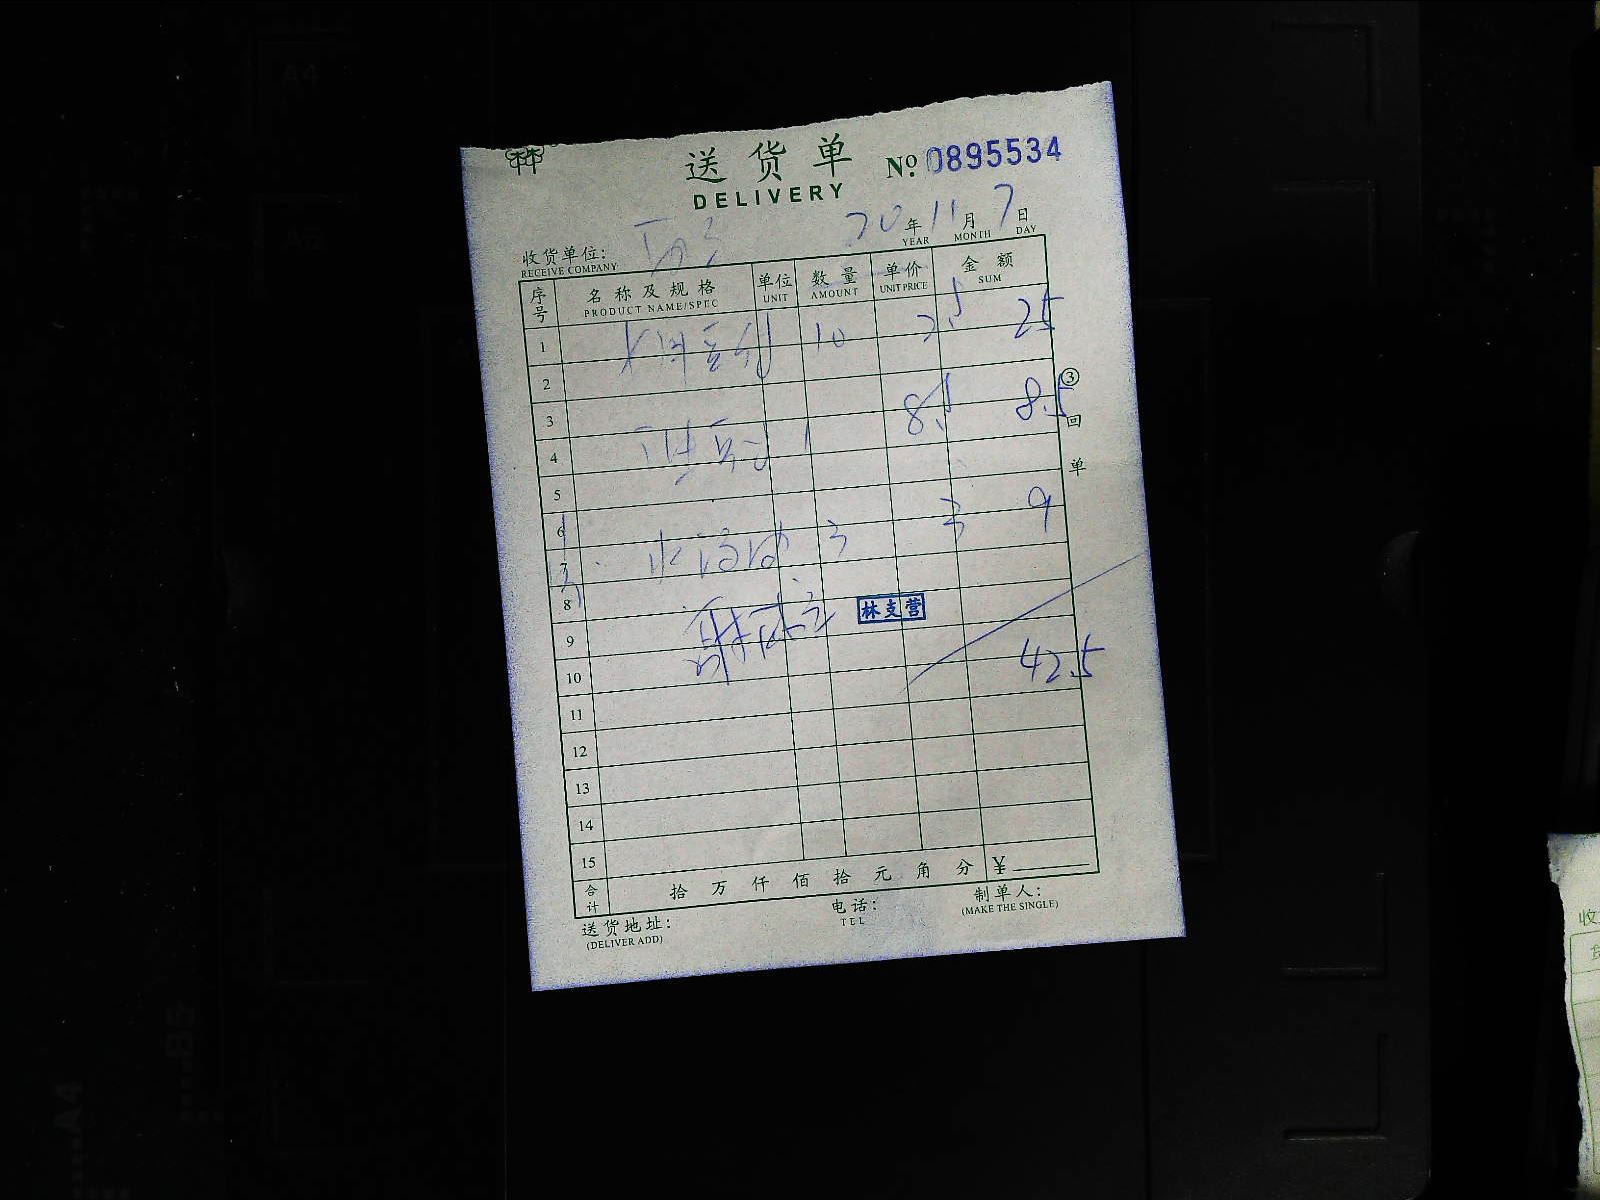 送货单 No. 0895534
DELIVERY
20 年 11 月 7 日
YEAR MONTH DAY
收货单位:
RECEIVE COMPANY
序号 名称及规格 单位 数量 单价 金额
PRODUCT NAME/SPEC UNIT AMOUNT UNIT PRICE SUM
1 10 2.5 25
2
3
4 1 8.5 8.5
5
6 3 3 9
7
8 林支营
9
10 42.5
11
12
13
14
15
合计 拾 万 仟 佰 拾 元 角 分 ¥
送货地址: 电话: 制单人:
(DELIVER ADD) TEL (MAKE THE SINGLE)
③回单
A4
B5
收